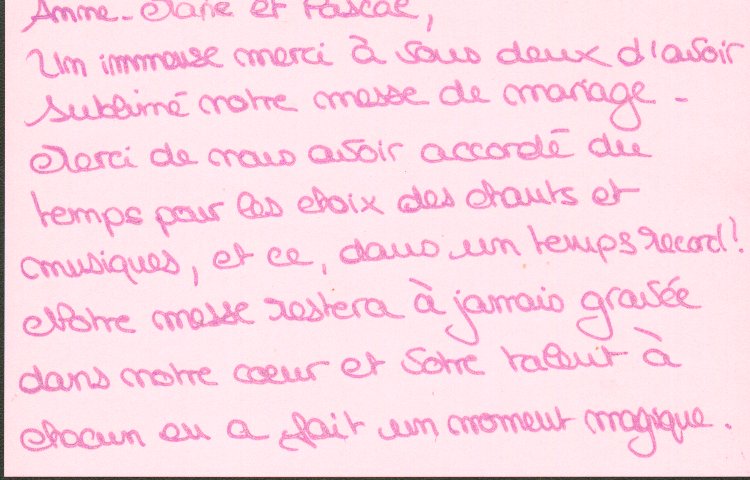 Anne-Marie et Pascal,
Un immense merci à vous deux d'avoir
sublimé notre messe de mariage -
Merci de nous avoir accordé du
temps pour les choix des chants et
musiques, et ce, dans un temps record!
Notre messe restera à jamais gravée
dans notre cœur et votre talent à
chacun en a fait un moment magique.